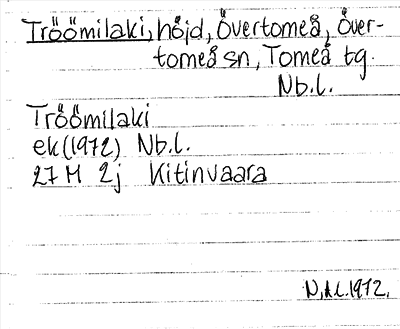 Tröömilaki, höjd, Övertorneå, Över-
torneå sn, Torneå tg.
Nb.l.
Tröömilaki
ek (1972) Nb.l.
27 M 2j Kitinvaara